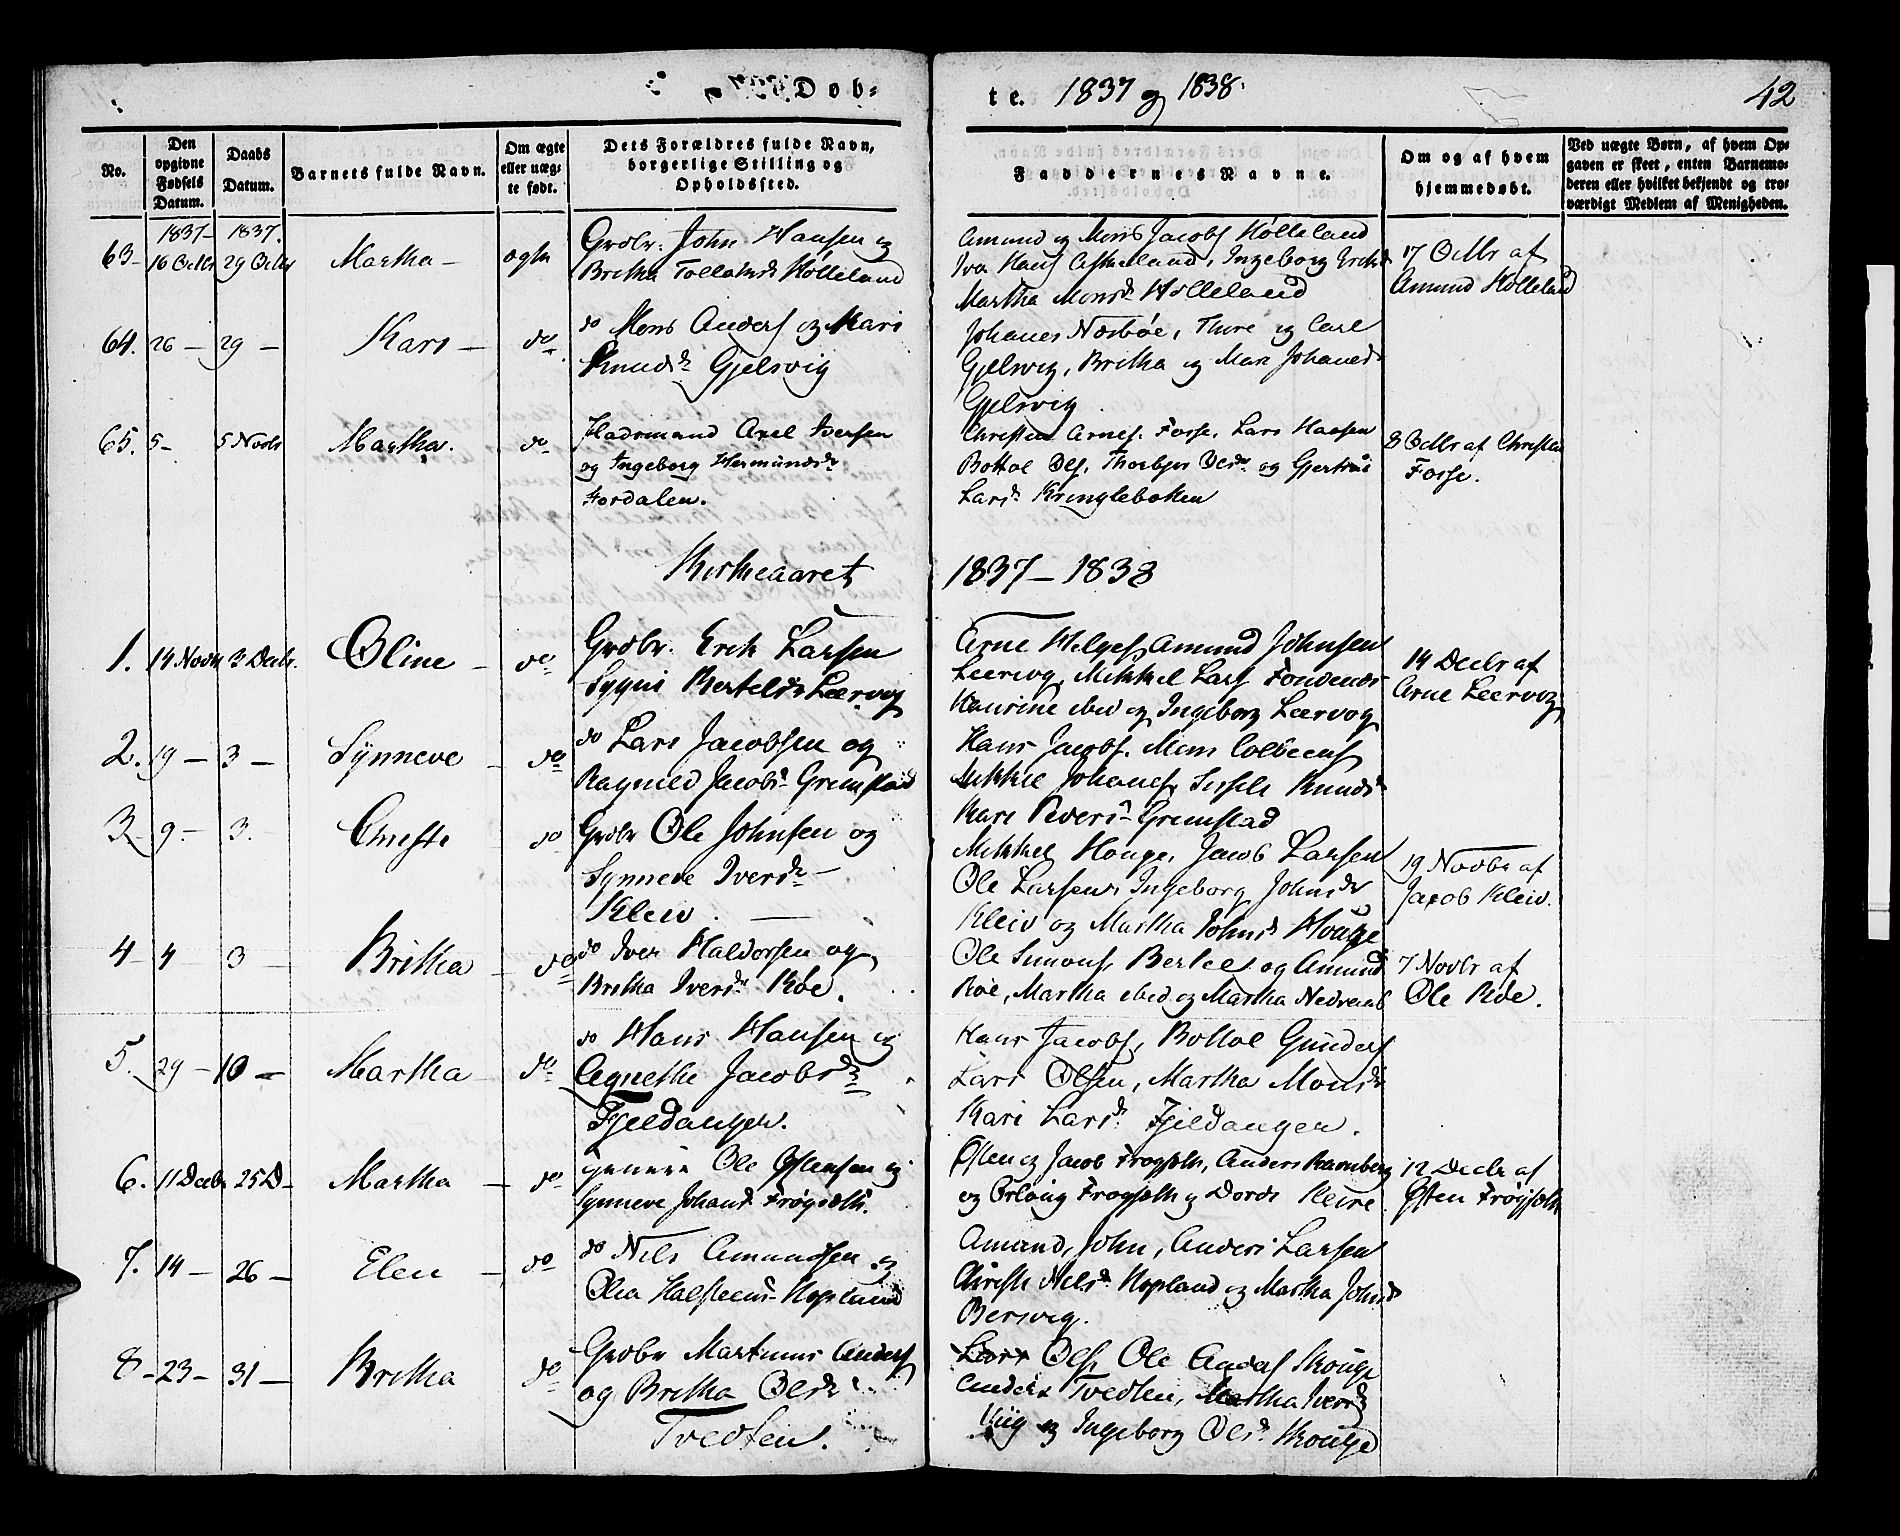 Dob-
te. 1837 og 1838.
42
No.
Den opgivne Fødsels Datum.
Daabs Datum.
Barnets fulde Navn.
Om ægte eller uægte født.
Dets Forældres fulde Navn, borgerlige Stilling og Opholdssted.
Faddernes Navne.
Om og af hvem hjemmedøbt.
Ved uægte Børn, af hvem Opgaven er skeet, enten Barnemoderen eller hvilket bekjendt og troværdigt Medlem af Menigheden.
1837 - 1837.
63 - 16 Octbr 29 Octbr Martha - ægte
Grdbr. John Hansen og
Britha Tollaksdr Hölleland
Amund og Mons Jacobs Hölleland
Iver Hans Askeland, Ingeborg Ericksd
Martha Monsdr Hölleland
17 Octbr af
Amund Hölleland
64. 26 - 29 - Kari - do
do Mons Anders og Mari
Knudsdr Gjelsvig
Johanes Næsböe, Thore og Carl
Gjelsvig, Britha og Mari Johanesd
Gjelsvig
65. 5 - 5 Novbr Martha. do
Huusmand Axel Iversen
og Ingeborg Hermundsdr
Fordalen.
Christen Arnes. Fosse, Lars Hansen
Bottol Ols, Thorbjør Olsdr og Gjertrud
Larsdr Kringleboken
8 Octbr af Christen
Fosse.
Kirkeaaret 1837 - 1838
1. 14 Novbr 3 Decbr. Oline - do
Grdbr. Erik Larsen
Sygni Bertelsdr Leervog
Arne Helges, Amund Johnsen
Leervog, Mikkel Lars Fondenæs
Kaurine ibid og Ingeborg Leervog
14 Decbr af
Arne Leervog
2. 19 - 3 - Synneve - do
do Lars Jacobsen og
Ragnild Jacobsdr Grimstad
Hans Jacobs. Mons Colbeens
Mikkel Johanes, Sissele Knudsdr
Kari Peders Grimstad
3 - 9 - 3. Christi - do
Grdbr Ole Johnsen og
Synneve Iversdr -
Kleiv.
Mikkel Houge, Jacob Larsen
Ole Larsens Ingeborg Johnsdr
Kleiv og Martha Johnsd Houge
19 Novbr af
Jacob Kleiv.
4 - 4 3 - Britha - do
do Iver Haldorsen og
Britha Iversdr Röe.
Ole Simons, Berkel og Amund
Röe, Martha ibid og Martha Nedreaab
7 Novbr af
Ole Röe.
5. 29 - 10 - Martha - do
do Hans Hansen og
Agnethe Jacobsdr
Fjeldanger.
Hans Jacobs, Bottol Gunders
Lars Olsen, Martha Monsdr
Kari Larsdr Fjeldanger.
6. 11 Decbr 25 D - Martha - do
Ole Østensen og
Synneve Johansd Frøgseth.
Østen og Jacob Frøgseth, Anders Ramberg
og Frøgseth og Dorde Keire
12 Decbr af
Østen Frøgseth
7. 14 - 26 - Elen - do
do Nils Amundsen og
Olia Halsteens Hopland
Amund, John, Anders Larsen
Christi Nilsdr Hopland og Martha Johnsd
Bersvig.
8 - 23 - 31 - Britha do
Grdbr Martinus Anders
og Britha Olsdr
Tvedten.
Lars Ols, Ole Anders Skouge
Anders Tvedten, Martha Iversdr
og Ingeborg Olsdr Skouge